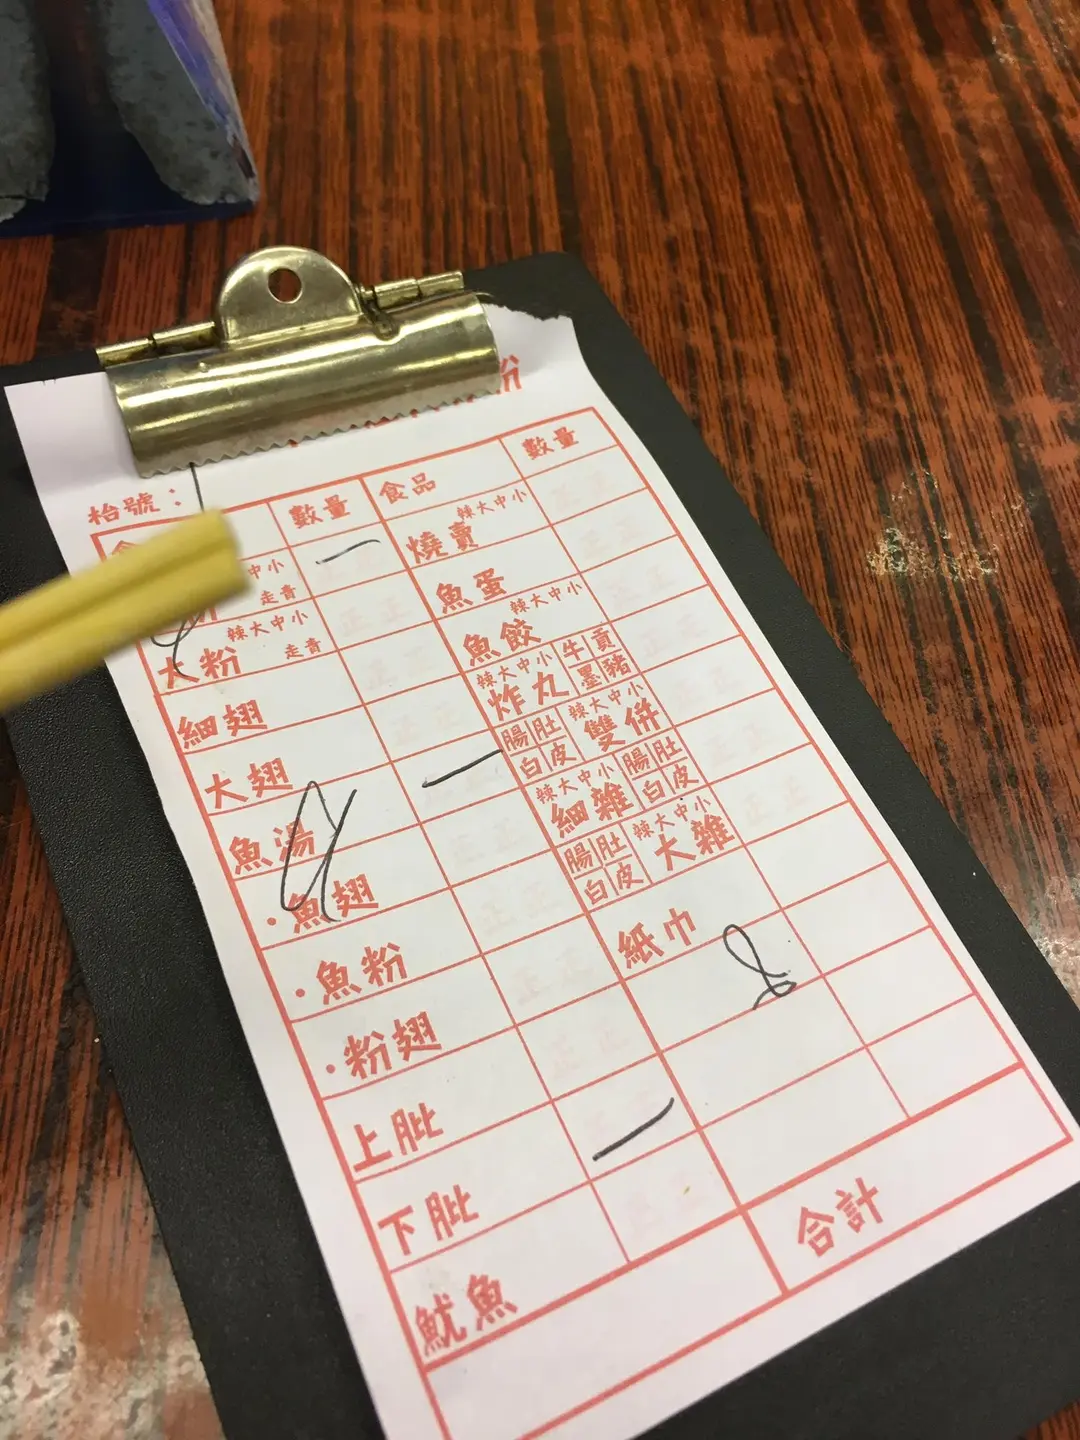 粉
枱號：
數量 食品 數量
中小
走青
辣大中小
大粉 走青
細翅
大翅
魚湯
·魚翅
·魚粉
·粉翅
上肶
下肶
魷魚
辣大中小
燒賣
魚蛋
辣大中小
魚餃
辣大中小 牛 貢
炸丸 墨 豬
腸 肚 辣大中小
白 皮 雙併
辣大中小 腸 肚
細雜 白 皮
腸 肚 辣大中小
白 皮 大雜
紙巾
合計